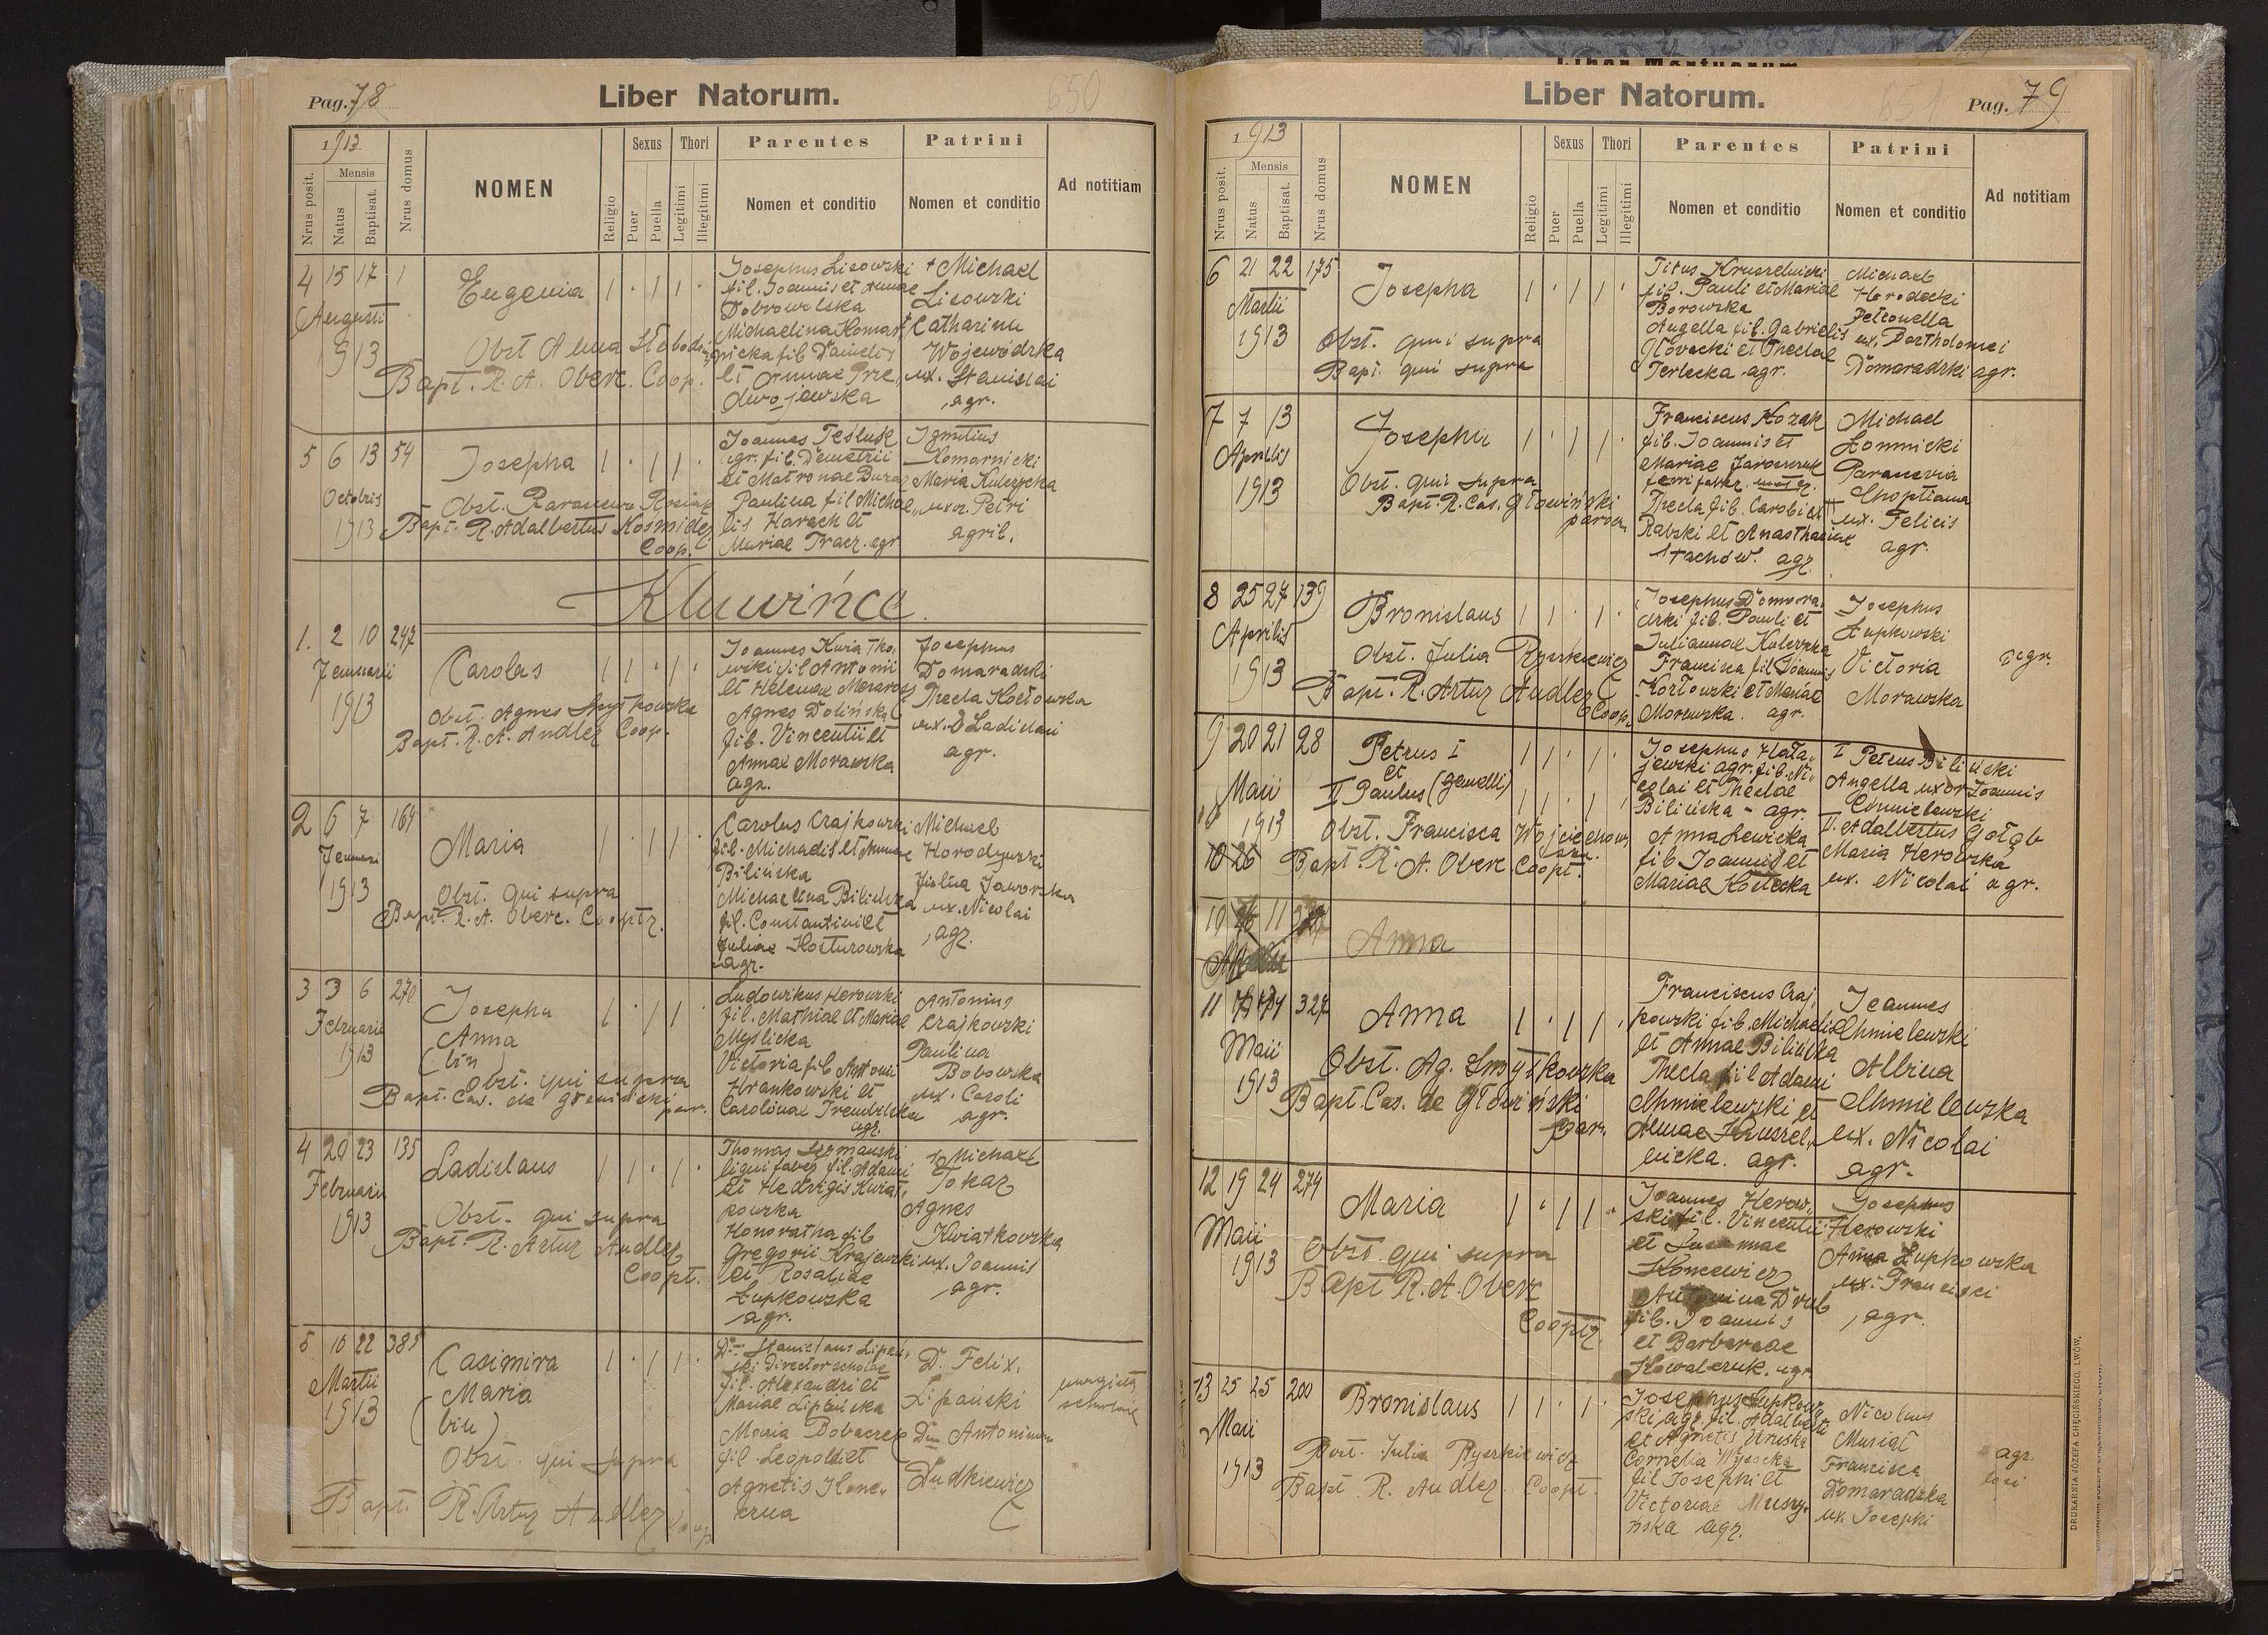 Pag. 78
Liber Natorum.
650
1913
Nrus posit.
Mensis
Natus
Baptisat.
Nrus domus
NOMEN
Religio
Sexus
Puer
Puella
Thori
Legitimi
Illegitimi
Parentes
Nomen et conditio
Patrini
Nomen et conditio
Ad notitiam
4 15 17 1
Augusti
913
Eugenia
Obst Anna
Bapt. R. A. Oberc. Coop.
Josephus Lisowski
fil. Joannis et Annae
Dobrowolska
Michaelina Komar
nicka fil Danielis
et Annae Prze
dwojewska
+ Michael
Lisowski
+ Catharina
Wojewódzka
ux. Stanislai
agr.
5 6 13 54
Octobris
1913
Josepha
Obst.
Bapt. R. Adalbertus Kosmider
Coop.
Joannes Tesluk
agr. fil. Demetrii
et Matronae
Paulina fil Michae
lis Harach et
Mariae Tracz. agr
Ignatius
Komarnicki
Maria Kulczycka
uxor. Petri
agric.
Kluwińce
1. 2 10 247
Januarii
1913
Carolus
Obst. Agnes Smytkowska
Bapt. R. A. Andler Coop.
Joannes Kwiatko
wski fil Antonii
et Helenae
Agnes Dolińska
fil. Vincentii et
Annae Morawska
agr.
Josephus
Domaradzki
Thecla Kozłowska
ux. Ladislai
agr.
2 6 7 164
Januarii
1913
Maria
Obst. qui supra
Bapt. R. A. Oberc. Cooptr.
Carolus Czajkowski
fil. Michaelis et Annae
Bilińska
Michaelina Bilińska
fil. Constantini et
Juliae Kosturowska
agr.
Michael
Horodyski
Julia Jaworska
ux. Nicolai
agr.
3 3 6 270
Februarii
1913
Josepha
Anna
(bin)
Obst. qui supra
Bapt. Cas. de Głowiński
par.
Ludovikus Herowski
fil. Mathiae et Mariae
Myślicka
Victoria fil Antoni
Hrankowski et
Carolinae Trembelska
agr.
Antonius
Czajkowski
Paulina
Bobowska
ux. Caroli
agr.
4 20 23 135
Februarii
1913
Ladislaus
Obst. qui supra
Bapt. R. Artur Andler
Coopt.
Thomas Szymański
ligni faber fil. Adami
et Hedvigis Kwiat
kowska
Honoratha fil
Gregorii Krajewski
et Rosaliae
Łupkowska
agr.
Michael
Tokar
Agnes
Kwiatkowska
ux. Joannis
agr.
5 16 22 385
Martii
1913
Casimira
Maria
(bin)
Obst. qui supra
Bapt. R. Artur Andler Coop
Stanislaus Lipań
ski Director scholae
fil. Alexandri et
Mariae Lipińska
Maria Dobaczek
fil. Leopoldi et
Agnetis
D. Felix
Lipański
Antonina
Dudkiewicz
Liber Natorum.
651
Pag. 79
1913
Nrus posit.
Mensis
Natus
Baptisat.
Nrus domus
NOMEN
Religio
Sexus
Puer
Puella
Thori
Legitimi
Illegitimi
Parentes
Nomen et conditio
Patrini
Nomen et conditio
Ad notitiam
6 21 22 175
Martii
1913
Josepha
Obst. qui supra
Bapt. qui supra
Titus Kruszelnicki
fil. Pauli et Mariae
Borowska
Angella fil. Gabrielis
Głovacki et Theclae
Terlecka agr.
Michael
Horodecki
Petronella
ux. Bartholomei
Domaradzki agr.
7 7 13
Aprilis
1913
Josepha
Obst. qui supra
Bapt. R. Cas. Głowiński
paroch
Franciscus Kozak
fil. Joannis et
Mariae Jaroszczuk
ferri faber
Thecla fil. Caroli
Rabski et Anasthasiae
Stachów. agr.
Michael
Łomnicki
Parascevia
Choptiana
ux. Felicis
agr.
8 25 27 139
Aprilis
1913
Bronislaus
Obst. Julia Ryszkiewicz
Bapt. R. Artur Andler
Coop.
Josephus Domara
dzki fil. Pauli et
Juliannae Kulczycka
Francisca fil Joannis
Kozłowski et Mariae
Morawska. agr.
Josephus
Łupkowski
Victoria
Morawska
agr.
9 20 21 28
Maii
1913
10 26
Petrus I
et
II Paulus (gemelli)
Obst. Francisca Wojciechow
ska.
Bapt. R. A. Oberc Coopt.
Josephus Hała
jewski agr. fil. Ni
colai et Theclae
Bilińska - agr.
Anna Lewicka
fil Joannis et
Mariae Kostecka
I Petrus Biliński
Angella uxor Joannis
Chmielewski
II. Adalbertus Gołąb
Maria Herowska
ux. Nicolai agr.
10 26 11 327
Anna
11 327
Maii
1913
Anna
Obst. Ag. Smytkowska
Bapt. Cas. de Głowiński
par.
Franciscus Czaj
kowski fil. Michaelis
et Annae Bilińska
Thecla fil Adami
Chmielewski et
Annae Kruszel
nicka. agr.
Joannes
Chmielewski
Albina
Chmielewska
ux. Nicolai
agr.
12 19 24 274
Maii
1913
Maria
Obst. qui supra
Bapt R. A. Oberc
Cooptr.
Joannes Herow
ski fil. Vincentii
et
Koncewicz
Antonina Drab
fil. Joannis
et Barbarae
Kowalczuk. agr
Josephus
Herowski
Anna Łupkowska
ux. Francisci
agr.
13 25 25 200
Maii
1913
Bronislaus
Obst. Julia Ryszkiewicz
Bapt R. Andler Coopt.
Josephus Łupkow
ski agr. fil. Adalberti
et Agnetis Uruska
Cornelia Wysocka
fil Josephi et
Victoriae Muszy
ńska agr.
Nicolaus
Musiał
Francisca
Domaradzka
ux. Josephi
agr.
loci
DRUKARNIA JÓZEFA CHĘCIŃSKIEGO, LWÓW.